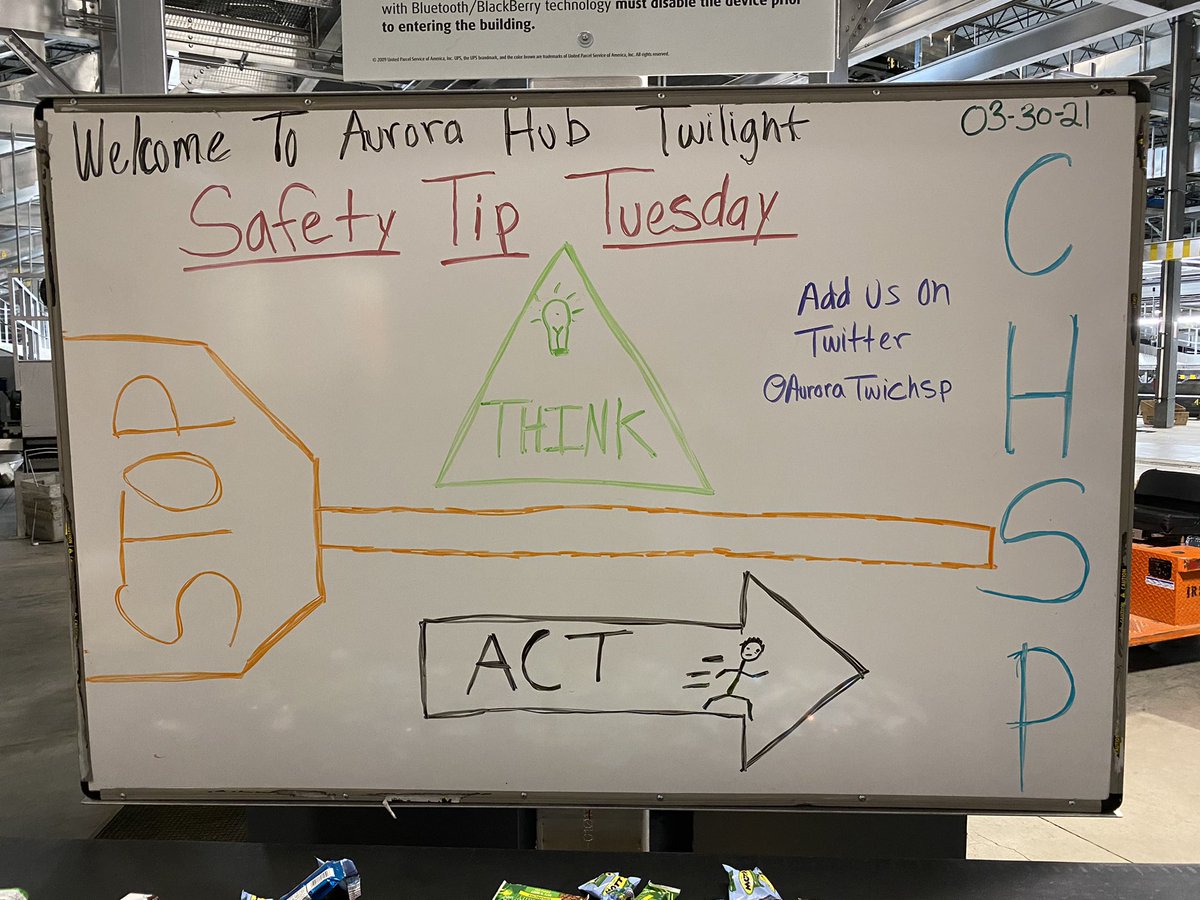 with Bluetooth/BlackBerry technology must disable the device prior
to entering the building.
© 2009 United Parcel Service of America, Inc. UPS, the UPS brandmark, and the color brown are trademarks of United Parcel Service of America, Inc. All rights reserved.
Welcome To Aurora Hub Twilight
03-30-21
Safety Tip Tuesday
Add us on
Twitter
@AuroraTwichsp
THINK
STOP
ACT
C
H
S
P